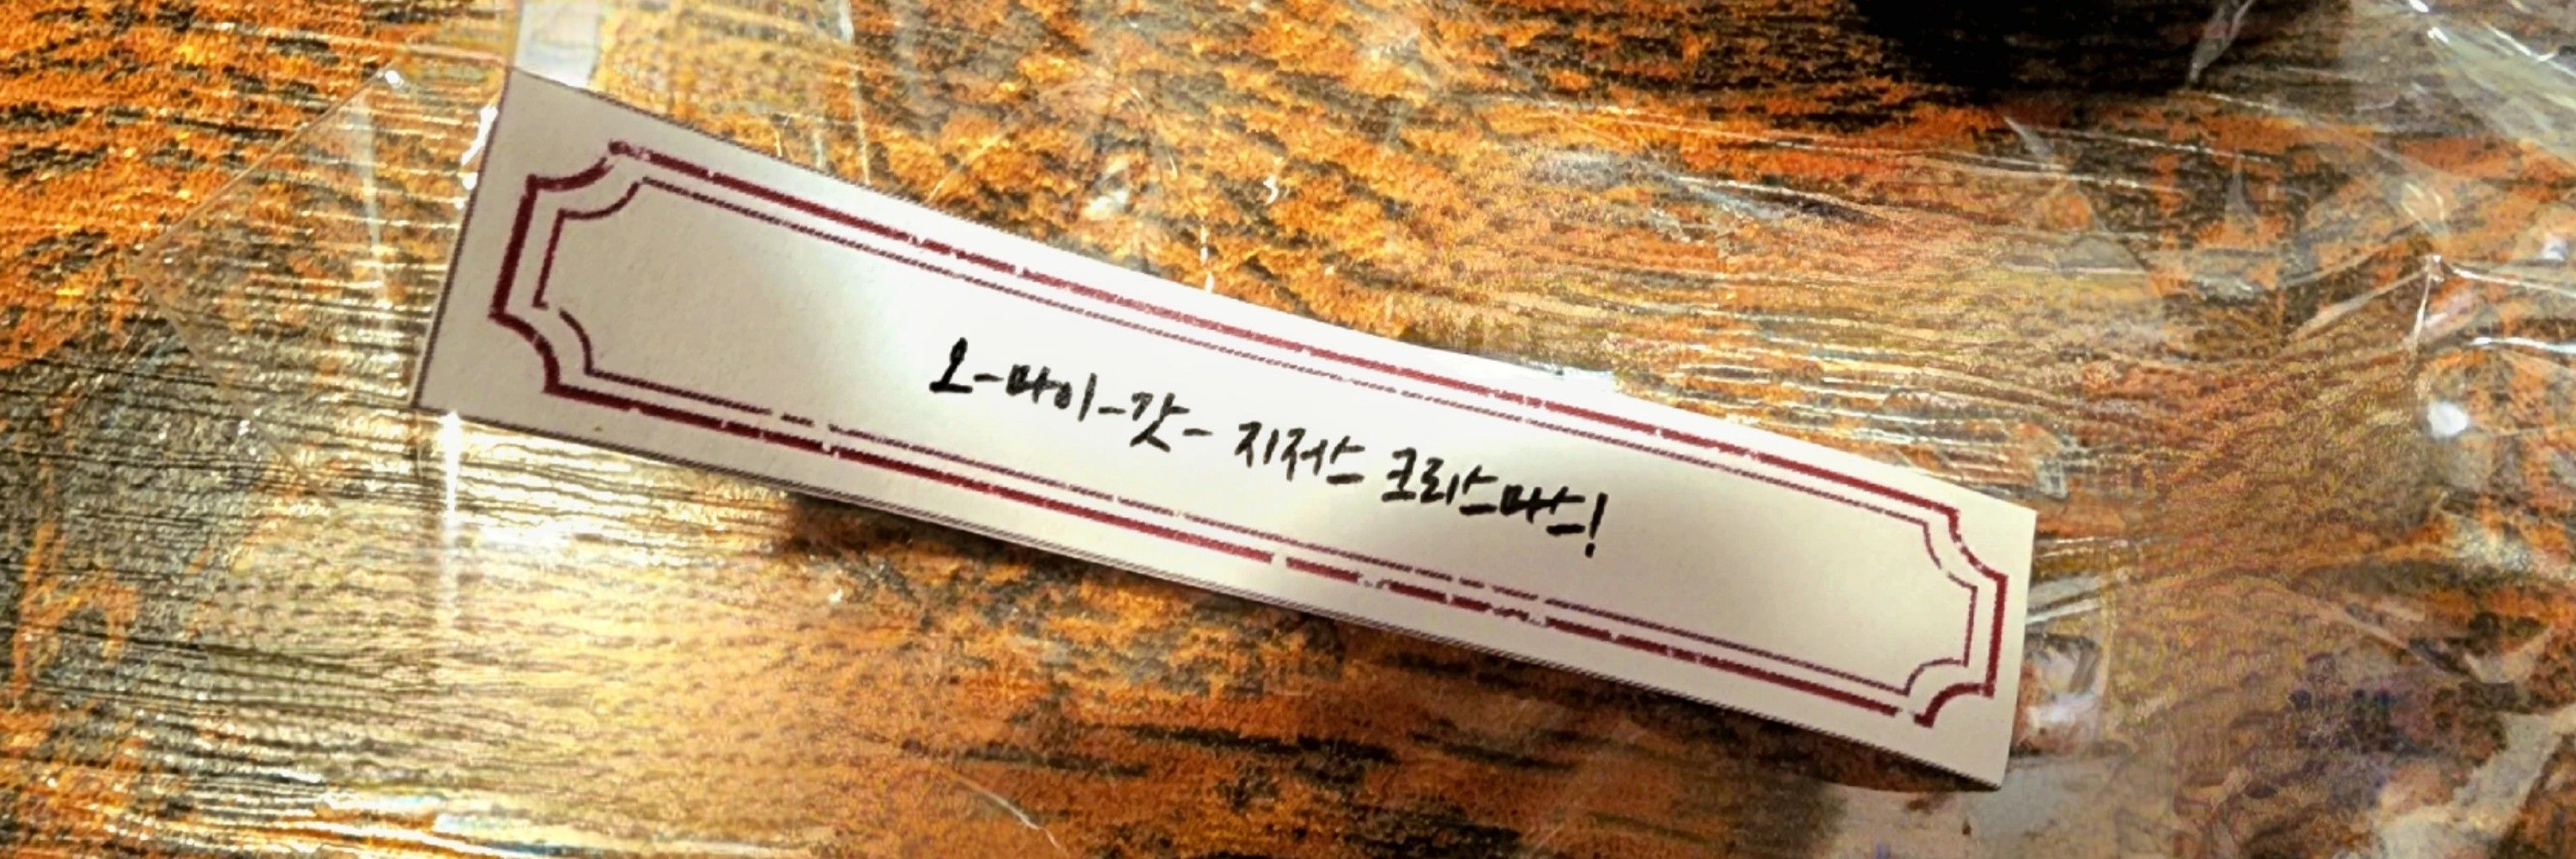 오-마이-갓- 지저스 크리스마스!